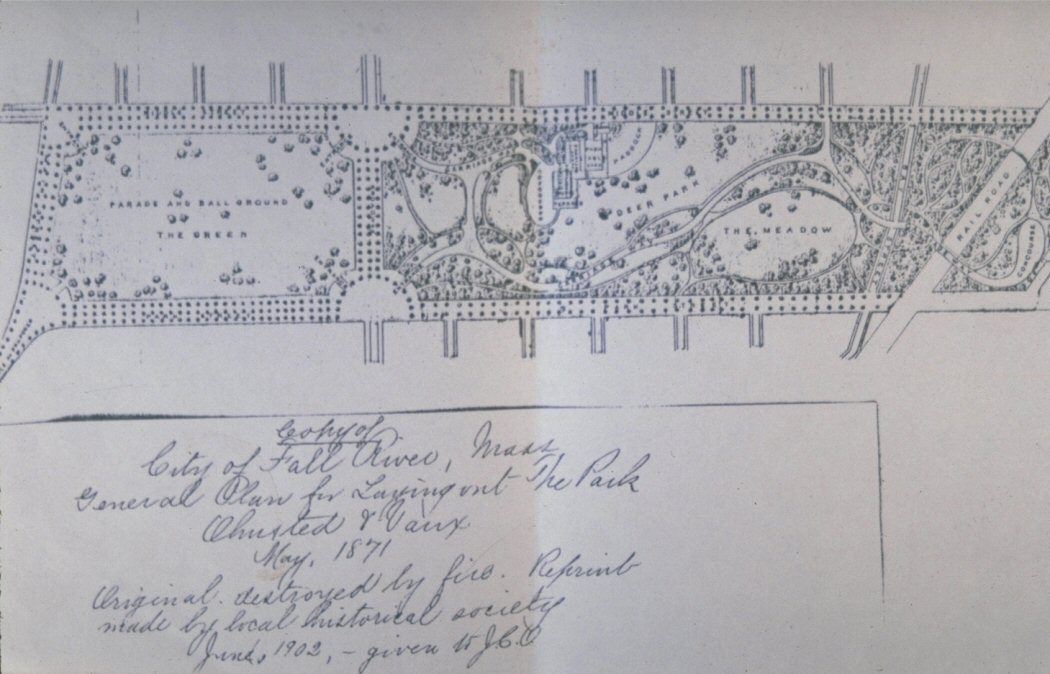 PARADE AND BALL GROUND
THE GREEN
PADDOCK
DEER PARK
THE MEADOW
RAIL ROAD
CONCOURSE
Copy of
City of Fall River, Mass
General Plan for Laying out The Park
Olmsted & Vaux
May, 1871
Original destroyed by fire. Reprint
made by local historical society
June, 1902, – given to J.C.O.